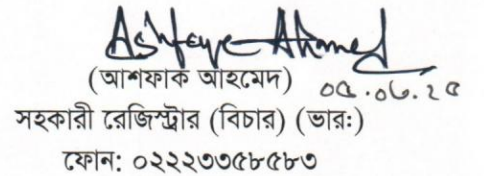 Ashfaque Ahmed
(আশফাক আহমেদ)
সহকারী রেজিস্ট্রার (বিচার) (ভার:)
ফোন: ০২২২৩৩৫৮৫৮৩